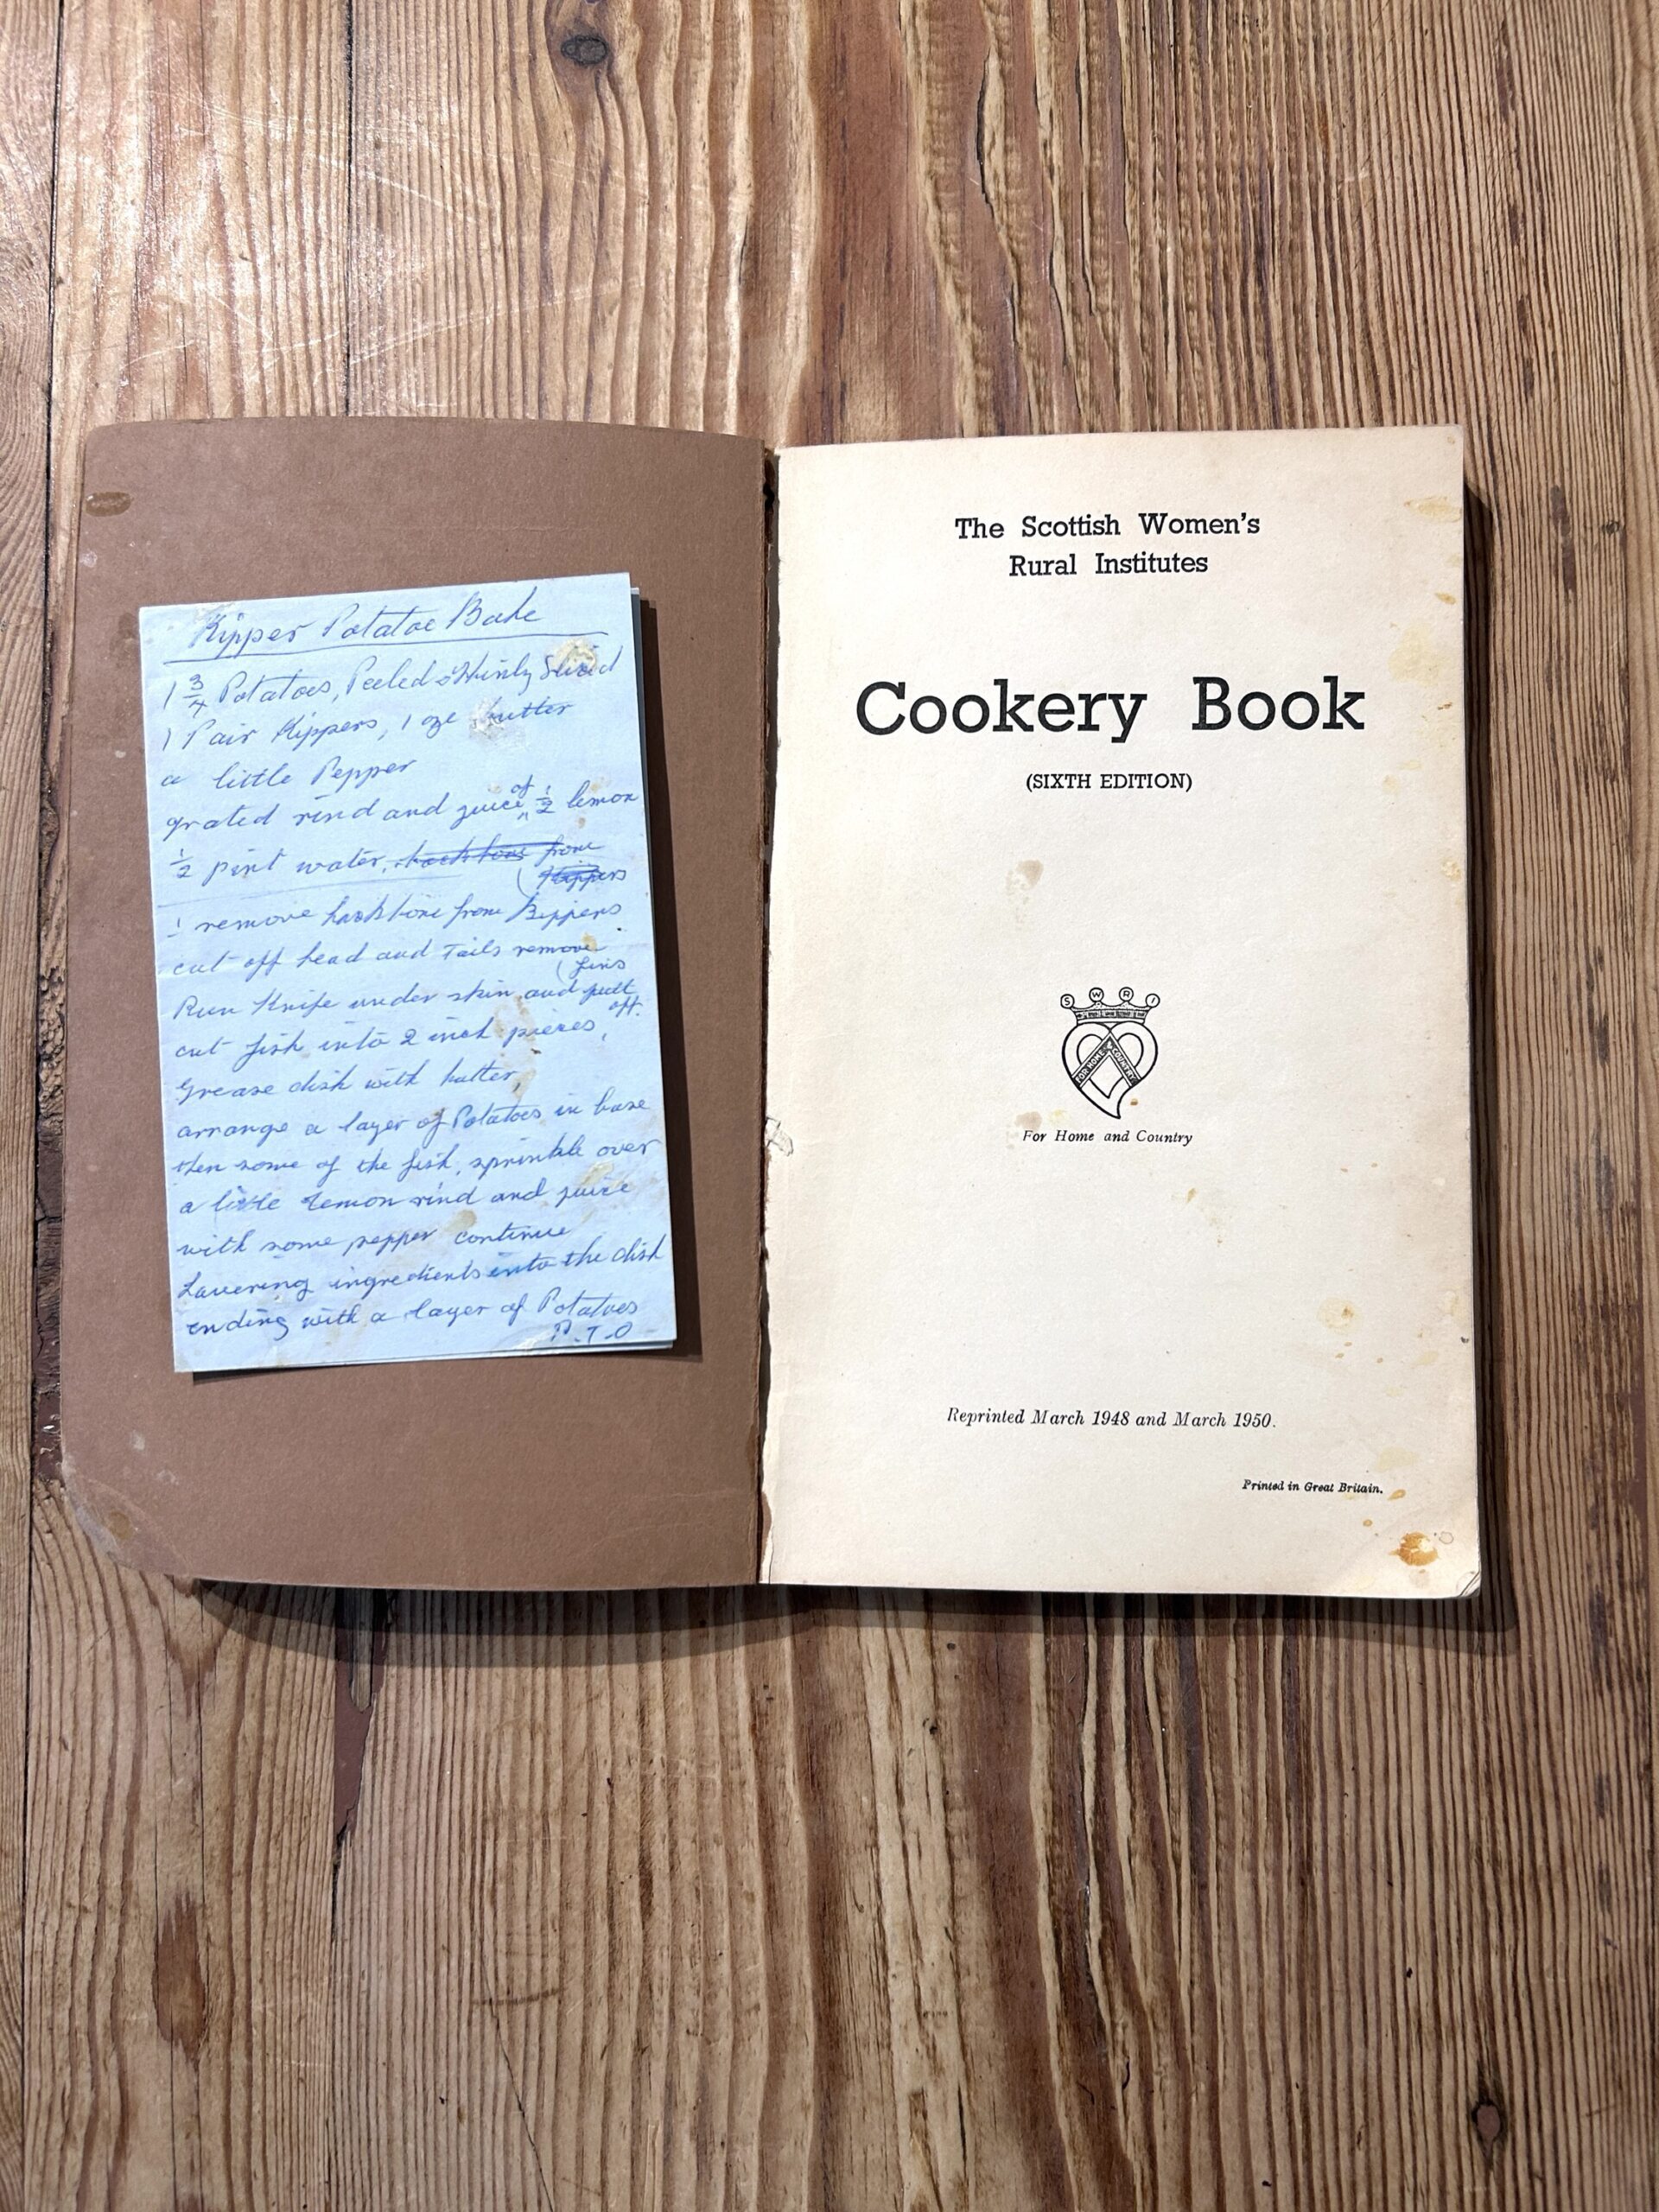 Kipper Potatoe Bake
1 3/4 Potatoes, Peeled & thinly Sliced
1 Pair Kippers, 1 oze butter
a little Pepper
grated rind and juice of 1/2 lemon
1/2 pint water, back bone from
Kippers
1 remove back bone from Kippers
cut off head and Tails remove
fins
Run Knife under skin and pull
off.
cut fish into 2 inch pieces,
Grease dish with butter,
arrange a layer of Potatoes in base
then some of the fish, sprinkle over
a little lemon rind and juice
with some pepper continue
Layering ingredients into the dish
ending with a layer of Potatoes
P.T.O
The Scottish Women's
Rural Institutes
Cookery Book
(SIXTH EDITION)
S W R I
FOR HOME & COUNTRY
For Home and Country
Reprinted March 1948 and March 1950.
Printed in Great Britain.